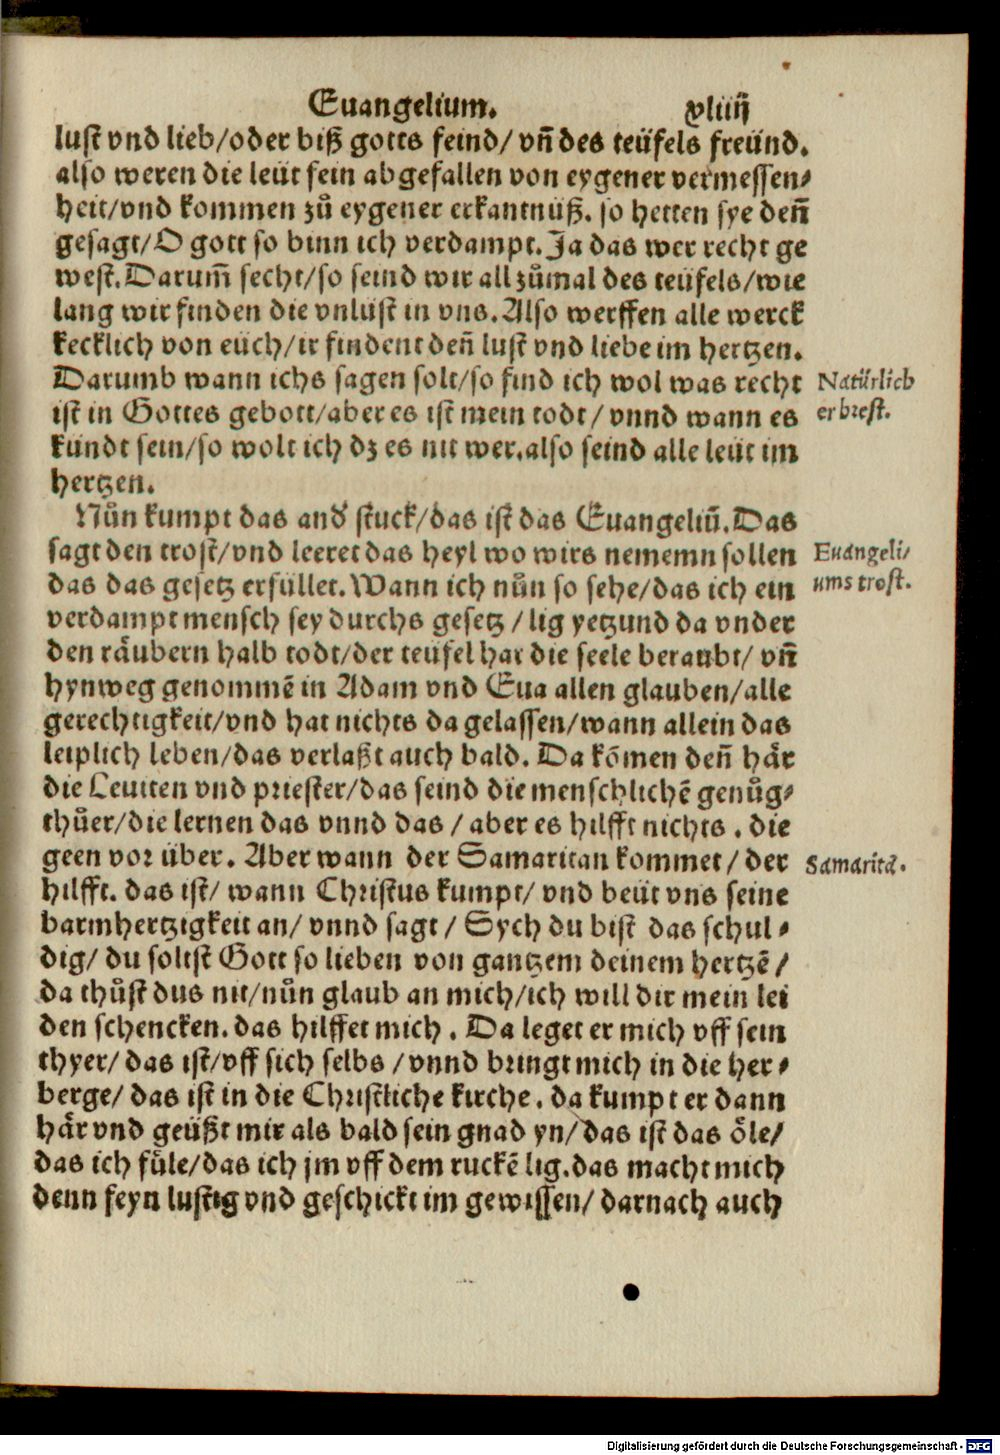 Euangelium. xliiij
lust vnd lieb/oder biß gotts feind/ vn̄ des teüfels freünd.
also weren die leüt fein abgefallen von eygener vermessen⸗
heit/vnd kommen zů eygener erkantnüß. so hetten sye deñ
gesagt/O gott so binn ich verdampt. Ja das wer recht ge
west. Darum̄ secht/so seind wir all zůmal des teüfels/wie
lang wir finden die vnlust in vns. Also werffen alle werck
kecklich von eüch/ir findent deñ lust vnd liebe im hertzen.
Darumb wann ichs sagen solt/so find ich wol was recht
Natürlich
ist in Gottes gebott/aber es ist mein todt/ vnnd wann es
er brest.
kündt sein/so wolt ich dz es nit wer. also seind alle leüt im
hertzen.
Nůn kumpt das and' stuck/das ist das Euangeliū. Das
sagt den trost/vnd leeret das heyl wo wirs nememn sollen
Euangeli⸗
das das gesetz erfüllet. Wann ich nůn so sehe/das ich ein
ums trost.
verdampt mensch sey durchs gesetz / lig yetzund da vnder
den räubern halb todt/der teüfel hat die seele beraubt/ vn̄
hynweg genommē in Adam vnd Eua allen glauben/alle
gerechtigkeit/vnd hat nichts da gelassen/wann allein das
leiplich leben/das verlaßt auch bald. Da kōmen deñ här
die Leuiten vnd priester/das seind die menschlichē genůg⸗
thůer/die lernen das vnnd das / aber es hilfft nichts . die
geen vor über. Aber wann der Samaritan kommet/ der
Samaritā.
hilfft. das ist/ wann Christus kumpt/ vnd beüt vns seine
barmhertzigkeit an/ vnnd sagt / Sych du bist das schul⸗
dig/ du soltst Gott so lieben von gantzem deinem hertzē/
da thůst dus nit/nůn glaub an mich/ich will dir mein lei
den schencken. das hilffet mich . Da leget er mich vff sein
thyer/ das ist/vff sich selbs / vnnd bringt mich in die her⸗
berge/ das ist in die Christliche kirche. da kumpt er dann
här vnd geüßt mir als bald sein gnad yn/das ist das öle/
das ich füle/das ich jm vff dem ruckē lig. das macht mich
denn feyn lustig vnd geschickt im gewissen/ darnach auch
Digitalisierung gefördert durch die Deutsche Forschungsgemeinschaft - DFG